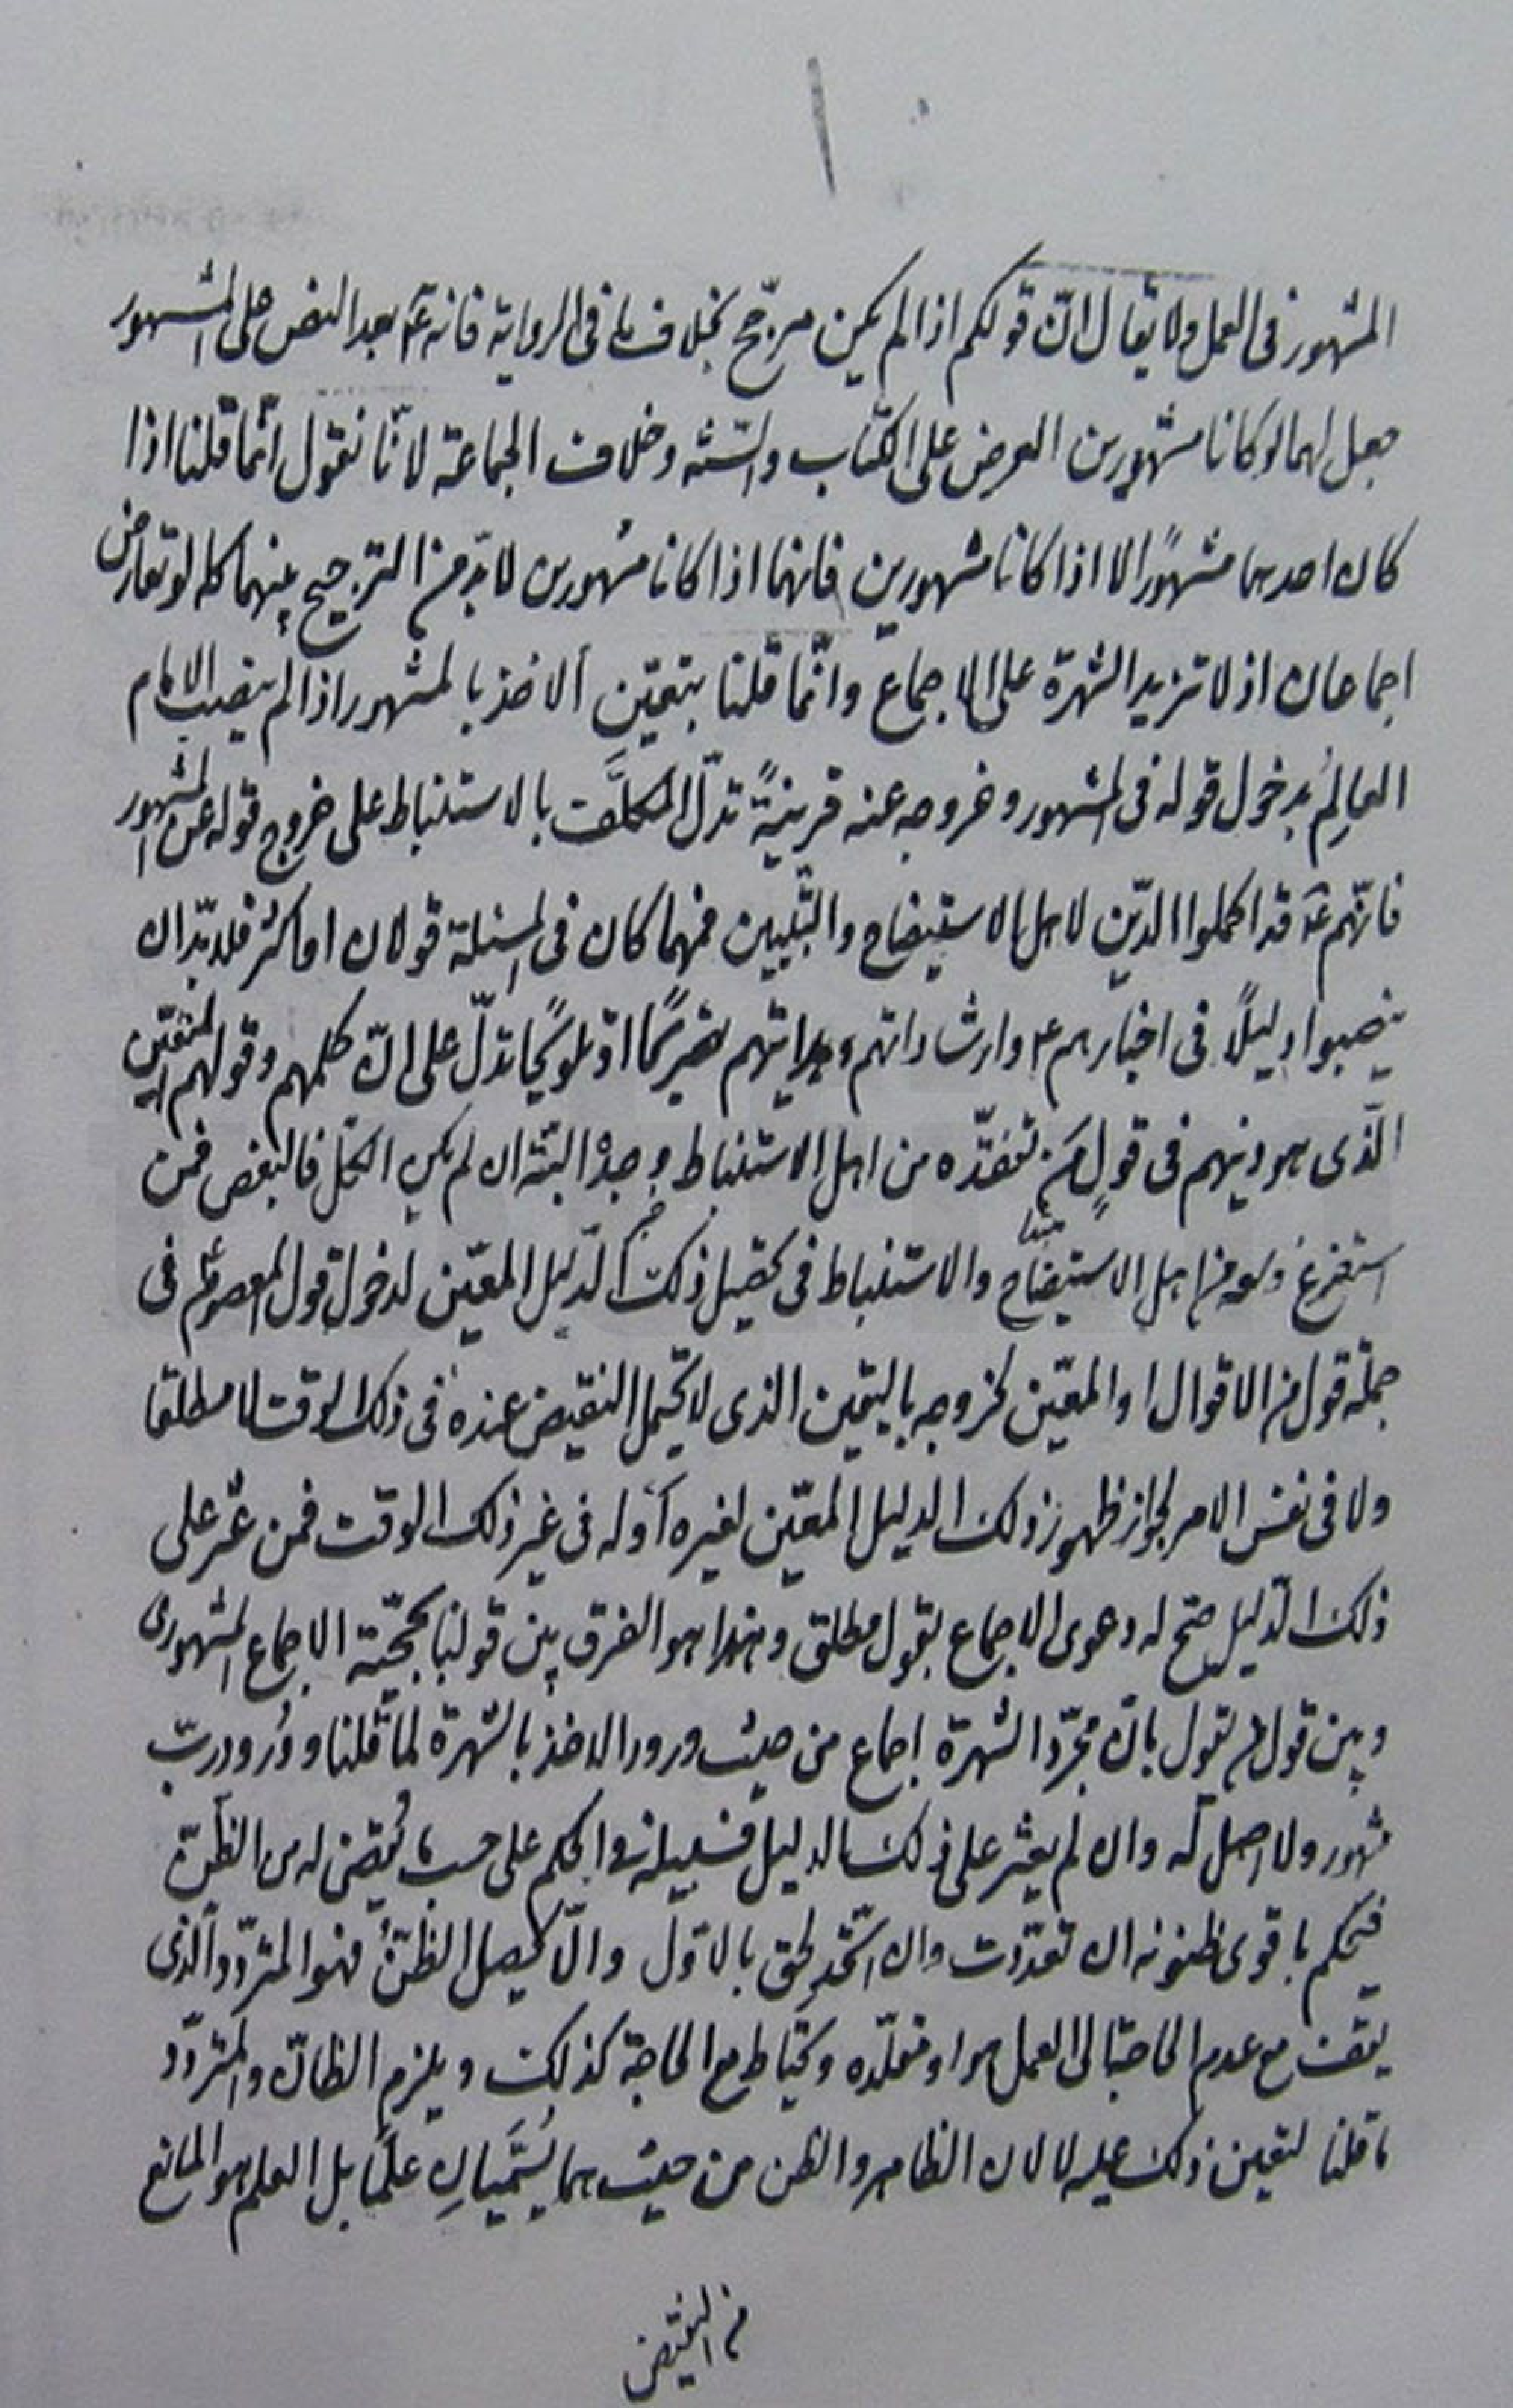 المشهور فى العمل ولا يقال انّ قولكم اذا لم يكن مرجّح بخلاف ما فى الرواية فانه ع بعد النص على المشهور
جعل لهما لو كانا مشهورين العرض على الكتاب والسّنّة وخلاف الجماعة لانّا نقول انّما قلنا اذا
كان احدهما مشهورًا لا اذا كانا مشهورين فانهما اذا كانا مشهورين لا بدّ من الترجيح بينهما كما لو تعارض
اجماعان اذ لا تزيد الشهرة على الاجماع وانّما قلنا بتعيّن الاخذ بالمشهور اذا لم ينصب الامام
العالِمُ بدخول قوله فى المشهور وخروجه عنه قرينةً تدلّ المكلَّف بالاستنباط على خروج قوله عن المشهور
فانّهم ع قد اكملوا الدّين لاهل الاستيضاح والتّبيين فمهما كان فى المسئلة قولان او اكثر فلا بدّ ان
ينصبوا دليلًا فى اخبارهم ع وارشاداتهم وهداياتهم تصريحًا او تلويحًا تدلّ على انّ حكمهم وقولهم
الّذى هو دينهم فى قولِ مَن تفقّده من اهل الاستنباط وجده البتّة ان لم يكن الكلّ فالبعض فمن
استفرغ وسعه من اهل الاستيضاح والاستنباط فى تحصيل ذلك الدّليل المعيّن لدخول قول المعصوم ع فى
جملة قول من الاقوال او المعيّن لخروجه باليقين الذى لا يحتمل النقيض عنده فى ذلك الوقت لا مطلقا
ولا فى نفس الامر لجواز ظهور ذلك الدليل المعيّن لغيره او له فى غير ذلك الوقت فمن عثر على
ذلك الدّليل صحّ له دعوى الاجماع بقول مطلق وهذا هو الفرق بين قولنا بحجّيّة الاجماع المشهورى
وبين قول من يقول بانّ مجرّد الشهرة اجماع من حيث ورود الاخذ بالشهرة لما قلنا و وُرود ربّ
مشهور ولا اصل له وان لم يعثر على ذلك الدليل فسبيله فى الحكم على حسب ما يُقيّض له من الظنّ
فيحكم باقوى ظنونه ان تعدّدت وان اتّحد لحق بالاوّل والّا يحصل الظنّ فهو المتردّد الّذى
يقف مع عدم الحاجة الى العمل هو او مقلّده ويحتاط مع الحاجة كذلك ويلزم الظانّ والمتردّد
ما قلنا لتعين ذلك عليه لا لان الظاهر والظن من حيث هما يُسَمَّيانِ علمًا بل العلم هو المانع
من النقيض